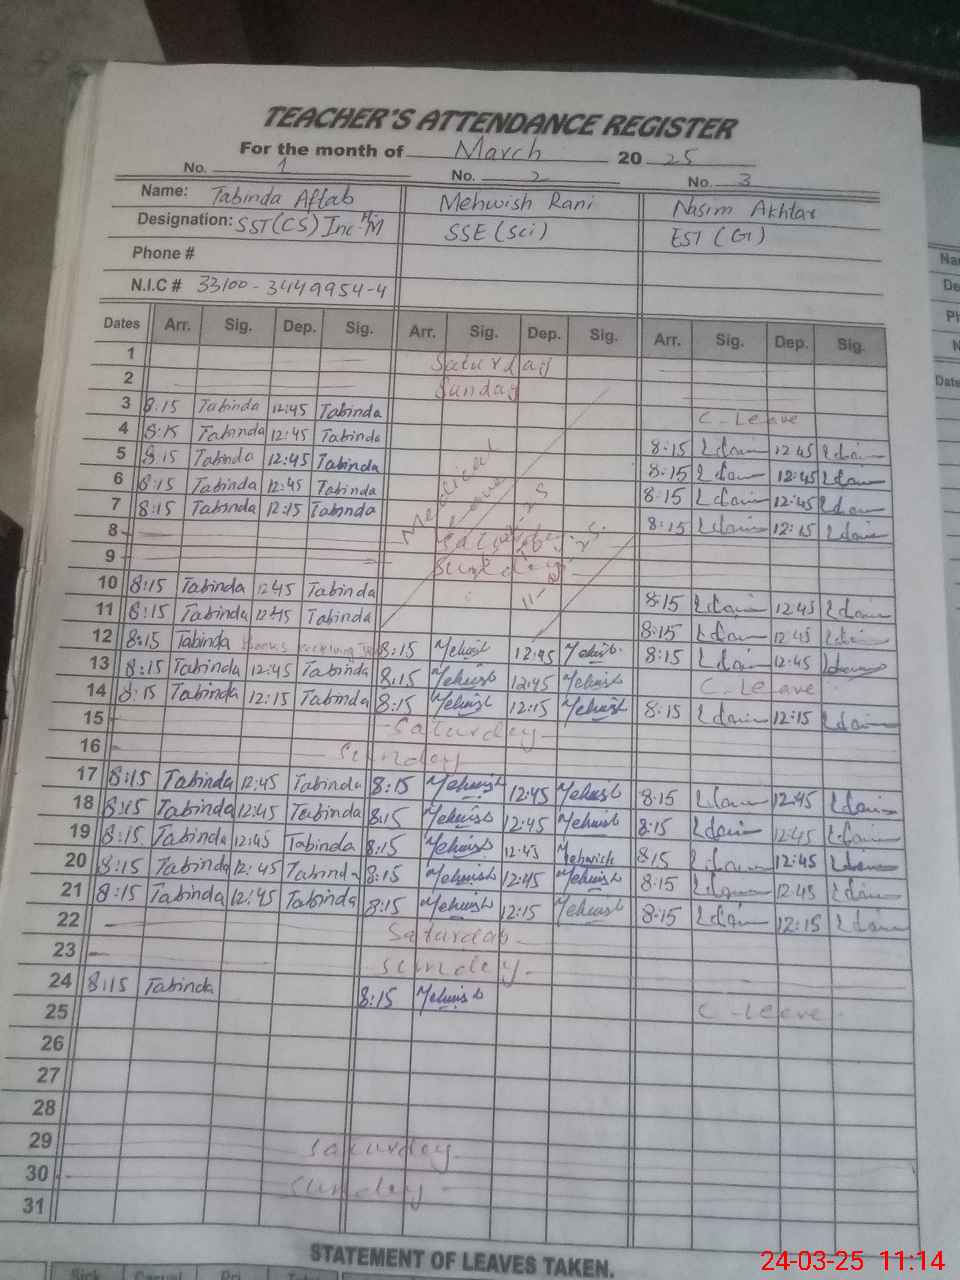 TEACHER'S ATTENDANCE REGISTER
For the month of March 2025
No. 1 No. 2 No. 3
Name: Tabinda Aftab Mehwish Rani Nasim Akhtar
Designation: SST(CS) Inc-H/M SSE (Sci) EST (G)
Phone #
N.I.C # 33100-3449954-4
Dates Arr. Sig. Dep. Sig. Arr. Sig. Dep. Sig. Arr. Sig. Dep. Sig.
1 Saturday
2 Sunday
3 8:15 Tabinda 12:45 Tabinda C-Leave
4 8:15 Tabinda 12:45 Tabinda 8:15 12:45
5 8:15 Tabinda 12:45 Tabinda 8:15 12:45
6 8:15 Tabinda 12:45 Tabinda 8:15 12:45
7 8:15 Tabinda 12:15 Tabinda 8:15 12:15
Medical Leave
8
9 Sunday
10 8:15 Tabinda 12:45 Tabinda 8:15 12:45
11 8:15 Tabinda 12:45 Tabinda 8:15 12:45
12 8:15 Tabinda 8:15 Mehwish 12:45 Mehwish 8:15 12:45
13 8:15 Tabinda 12:45 Tabinda 8:15 Mehwish 12:45 Mehwish C-Leave
14 8:15 Tabinda 12:15 Tabinda 8:15 Mehwish 12:15 Mehwish 8:15 12:15
15 Saturday
16 Sunday
17 8:15 Tabinda 12:45 Tabinda 8:15 Mehwish 12:45 Mehwish 8:15 12:45
18 8:15 Tabinda 12:45 Tabinda 8:15 Mehwish 12:45 Mehwish 8:15 12:45
19 8:15 Tabinda 12:45 Tabinda 8:15 Mehwish 12:45 Mehwish 8:15 12:45
20 8:15 Tabinda 12:45 Tabinda 8:15 Mehwish 12:45 Mehwish 8:15 12:45
21 8:15 Tabinda 12:45 Tabinda 8:15 Mehwish 12:15 Mehwish 8:15 12:15
22 Saturday
23 Sunday
24 8:15 Tabinda 8:15 Mehwish C-Leave
25
26
27
28
29 Saturday
30 Sunday
31
STATEMENT OF LEAVES TAKEN.
Sick Casual
24-03-25 11:14